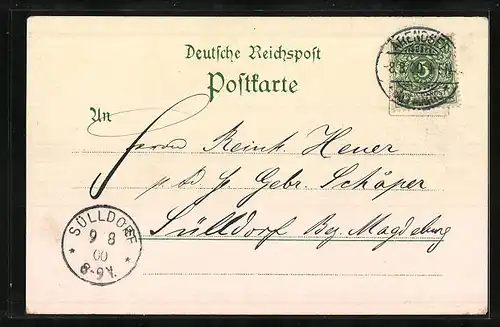 Deutsche Reichspost
Postkarte
ARENDSEE
8.8.
5
An
Herrn Reinh. Heuer
p. Ad. Gebr. Schäper
Sülldorf Bez. Magdeburg
SÜLLDORF
9 8
00
8-9V.